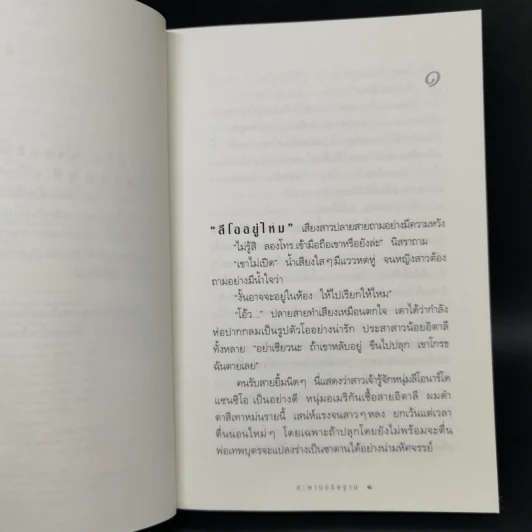 ๑
“ลีโออยู่ไหม” เสียงสาวปลายสายถามอย่างมีความหวัง
“ไม่รู้สิ ลองโทร.เข้ามือถือเขาหรือยังล่ะ” นิสราถาม
“เขาไม่เปิด” น้ำเสียงใสๆ มีแววหดหู่ จนหญิงสาวต้อง
ถามอย่างมีน้ำใจว่า
“งั้นอาจจะอยู่ในห้อง ให้ไปเรียกให้ไหม”
“โอ๊ว...” ปลายสายทำเสียงเหมือนตกใจ เดาได้ว่ากำลัง
ห่อปากกลมเป็นรูปตัวโออย่างน่ารัก ประสาสาวน้อยอิตาลี
ทั้งหลาย “อย่าเชียวนะ ถ้าเขาหลับอยู่ ขืนไปปลุก เขาโกรธ
ฉันตายเลย”
คนรับสายยิ้มนิดๆ นี่แสดงว่าสาวเจ้ารู้จักหนุ่มลีโอนาร์โด
แซนซิโอ เป็นอย่างดี หนุ่มอเมริกันเชื้อสายอิตาลี ผมดำ
ตาสีเทาหม่นรายนี้ เสน่ห์แรงจนสาวๆ หลง ยกเว้นแต่เวลา
ตื่นนอนใหม่ๆ โดยเฉพาะถ้าปลุกโดยยังไม่พร้อมจะตื่น
พ่อเทพบุตรจะแปลงร่างเป็นซาตานได้อย่างน่ามหัศจรรย์